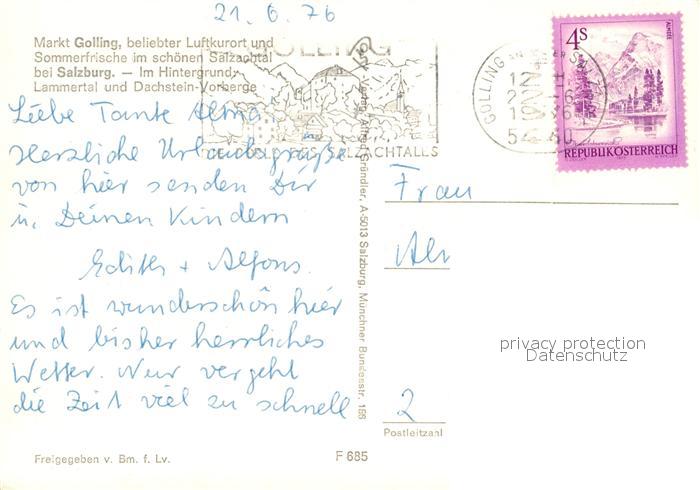 21. 6. 76
Markt Golling, beliebter Luftkurort und
Sommerfrische im schönen Salzachtal
bei Salzburg. — Im Hintergrund:
Lammertal und Dachstein-Vorberge
Liebe Tante Alma.
Herzliche Urlaubsgrüße
von hier senden Dir
u. Deinen Kindern
Edith + Alfons.
Es ist wunderschön hier
und bisher herrliches
Wetter. Nur vergeht
die Zeit viel zu schnell
Freigegeben v. Bm. f. Lv.
F 685
GOLLING
SALZACHTALES
Verlag Gründler, A-5013 Salzburg, Münchner Bundesstr. 156
GOLLING
5440
4 S
ALMSEE
REPUBLIK ÖSTERREICH
Frau
Postleitzahl
privacy protection
Datenschutz